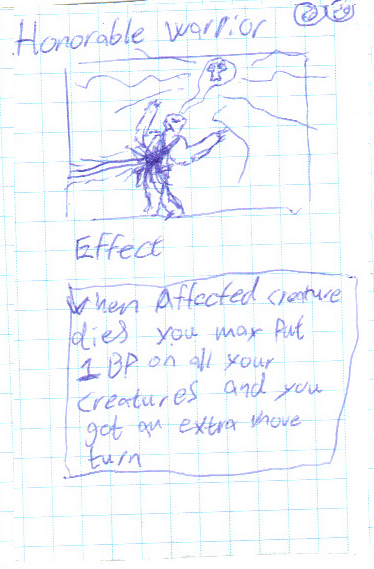 Honorable warrior
Effect
When Affected creature
dies you may Put
1 BP on all your
creatures and you
got an extra move
turn